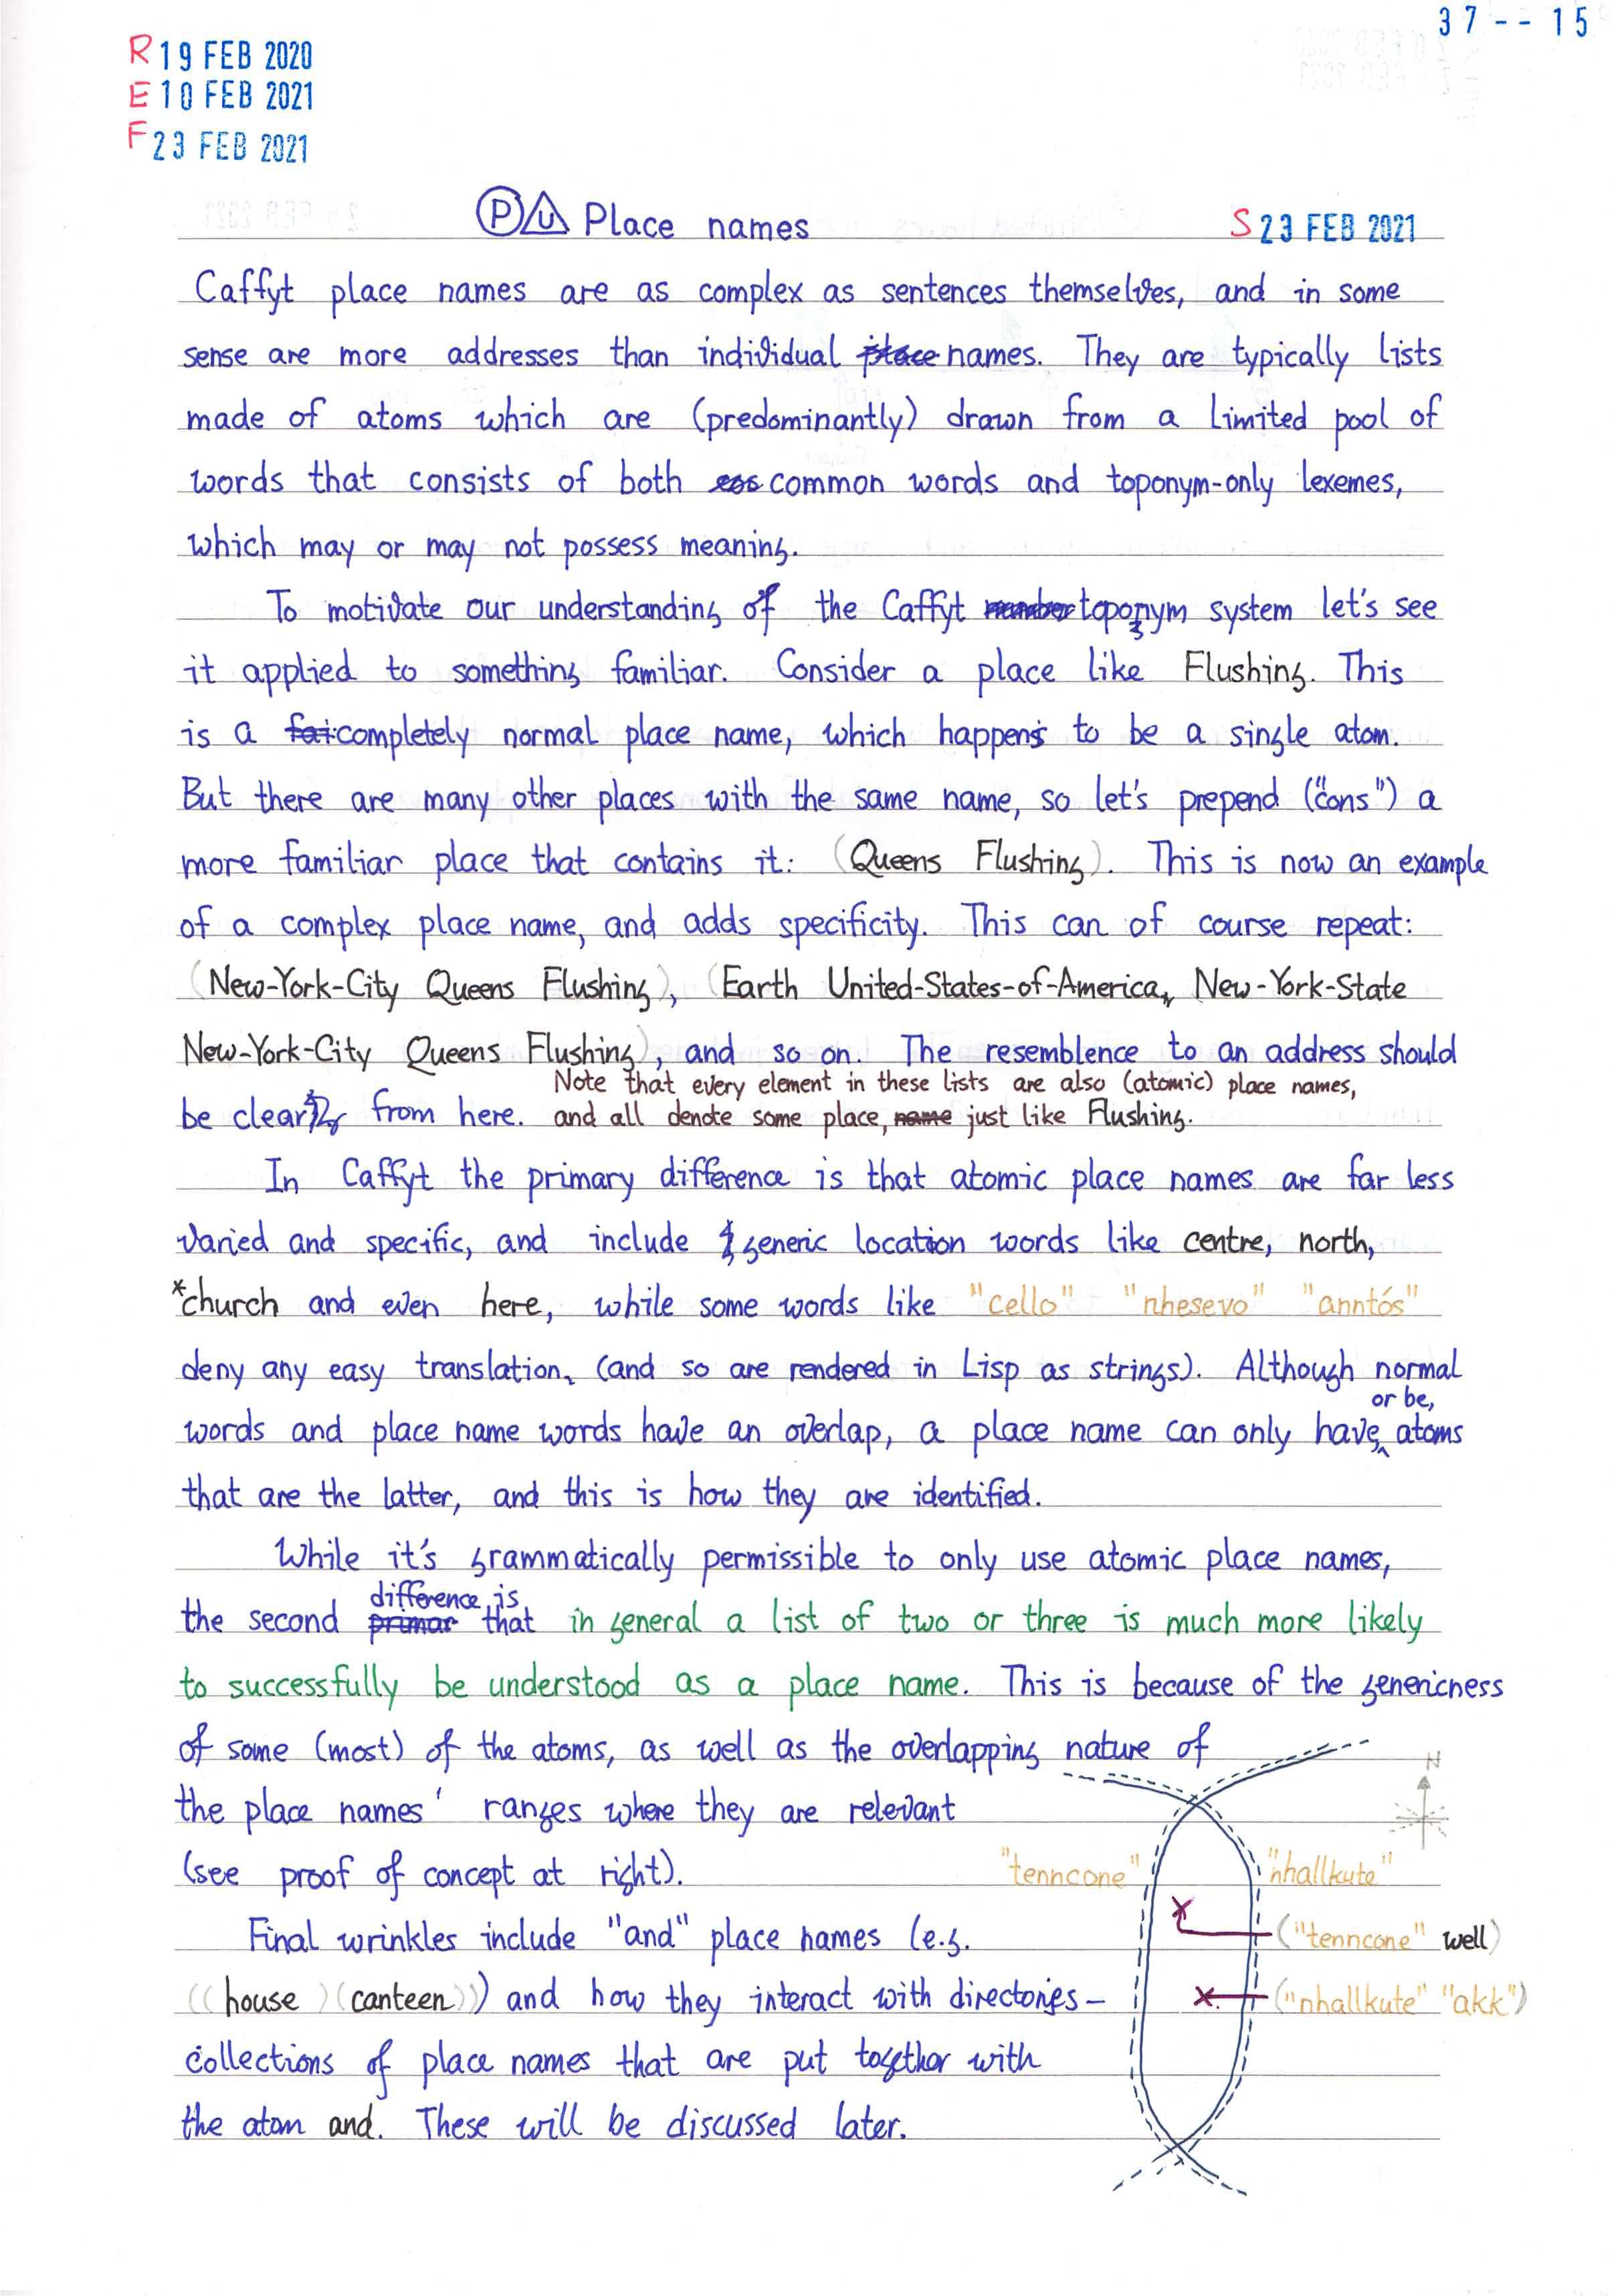 37--15
R 19 FEB 2020
E 10 FEB 2021
F 23 FEB 2021
P U Place names S 23 FEB 2021
Caffyt place names are as complex as sentences themselves, and in some
sense are more addresses than individual place names. They are typically lists
made of atoms which are (predominantly) drawn from a limited pool of
words that consists of both common words and toponym-only lexemes,
which may or may not possess meaning.
To motivate our understanding of the Caffyt number toponym system let's see
it applied to something familiar. Consider a place like Flushing. This
is a completely normal place name, which happens to be a single atom.
But there are many other places with the same name, so let's prepend ("cons") a
more familiar place that contains it: (Queens Flushing). This is now an example
of a complex place name, and adds specificity. This can of course repeat:
(New-York-City Queens Flushing), (Earth United-States-of-America, New-York-State
New-York-City Queens Flushing), and so on. The resemblence to an address should
Note that every element in these lists are also (atomic) place names,
be clear from here. and all denote some place, name just like Flushing.
In Caffyt the primary difference is that atomic place names are far less
varied and specific, and include generic location words like centre, north,
*church and even here, while some words like "cello" "nhesevo" "anntós"
deny any easy translation, (and so are rendered in Lisp as strings). Although normal
or be,
words and place name words have an overlap, a place name can only have atoms
that are the latter, and this is how they are identified.
While it's grammatically permissible to only use atomic place names,
difference is
the second primar that in general a list of two or three is much more likely
to successfully be understood as a place name. This is because of the genericness
of some (most) of the atoms, as well as the overlapping nature of
N
the place names' ranges where they are relevant
(see proof of concept at right). "tenncone" "nhallkute"
Final wrinkles include "and" place names (e.g. ("tenncone" well)
((house)(canteen))) and how they interact with directories– ("nhallkute" "akk")
collections of place names that are put together with
the atom and. These will be discussed later.